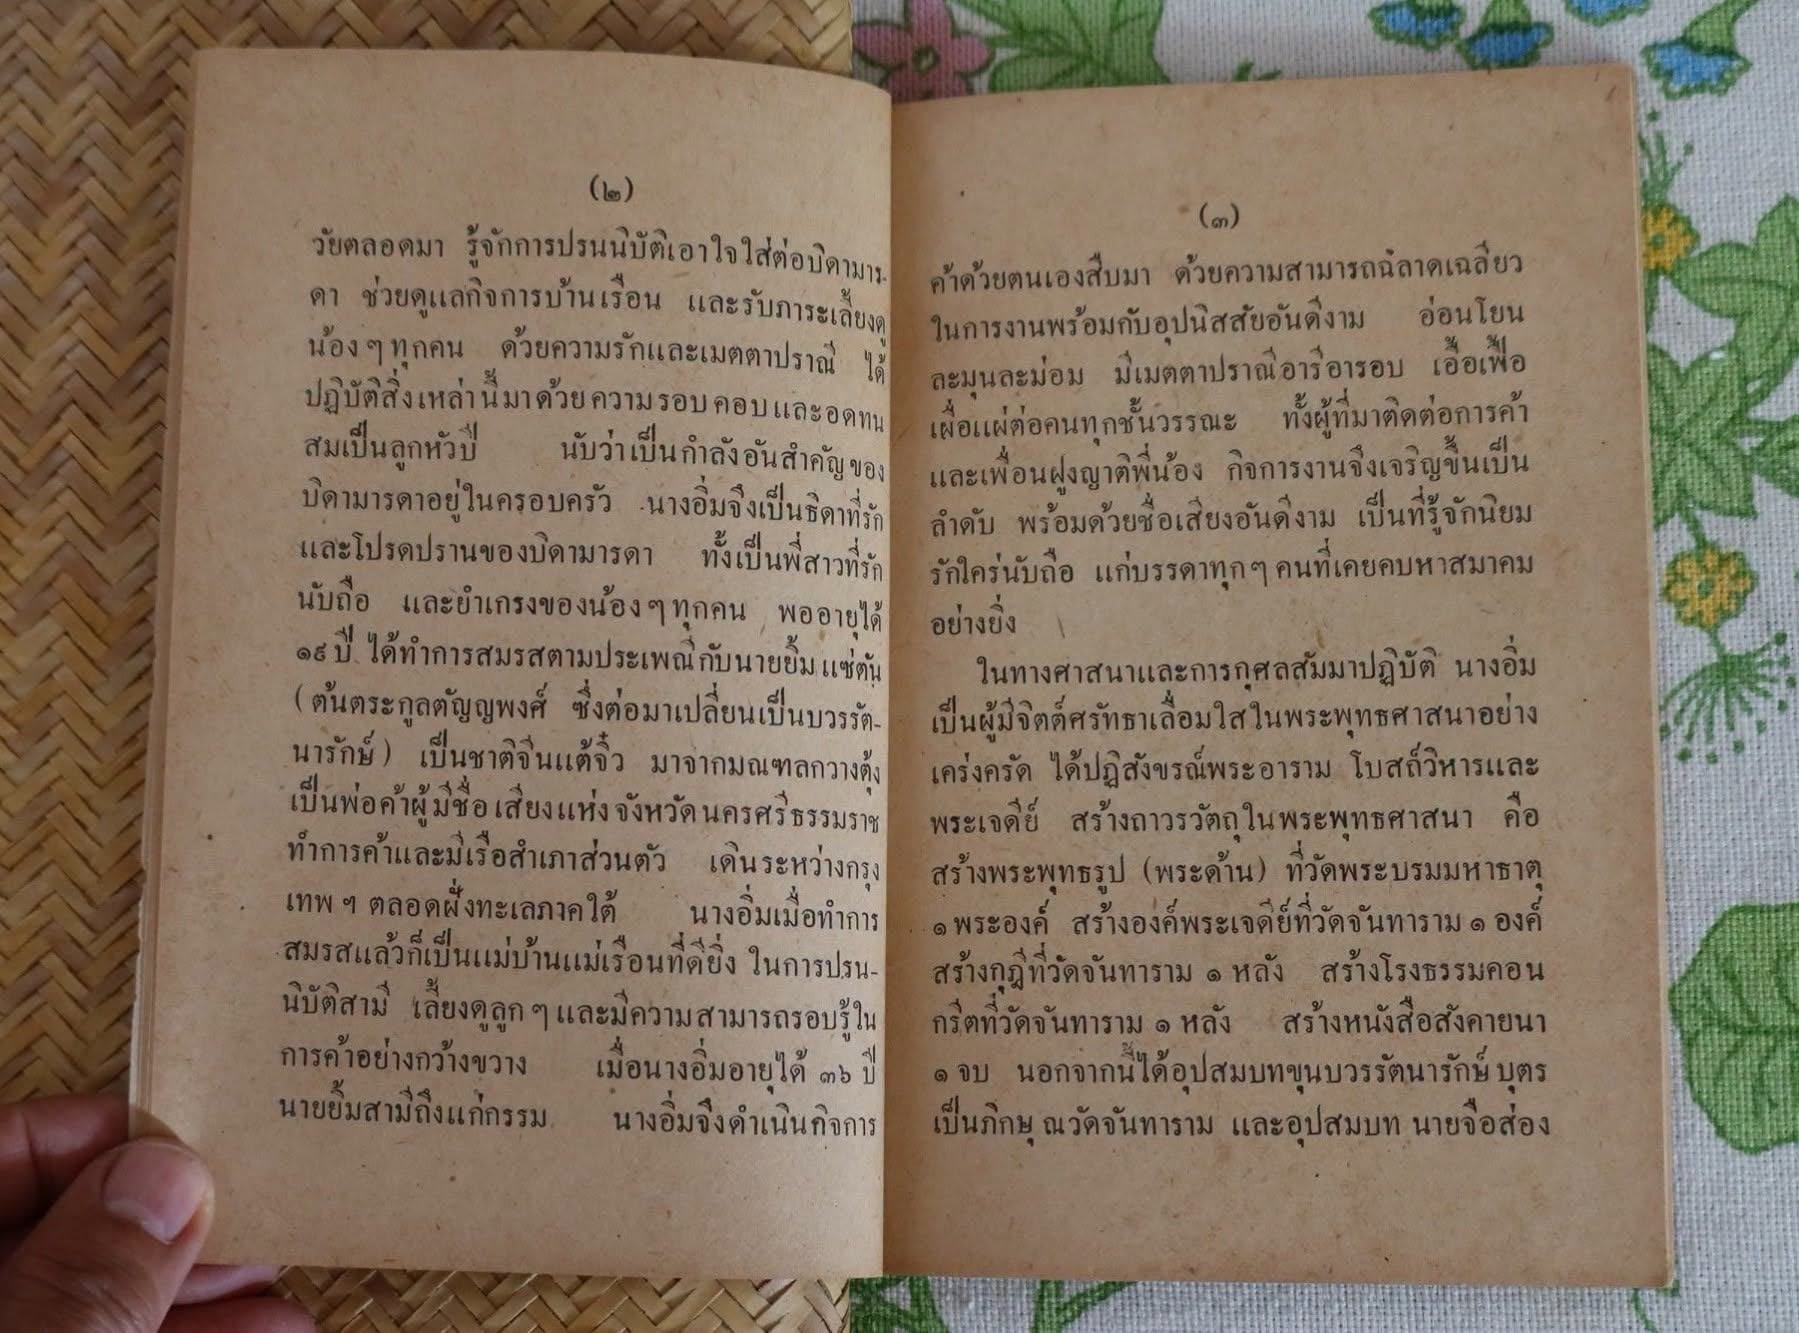 (๒)
วัยตลอดมา รู้จักการปรนนิบัติเอาใจใส่ต่อบิดามาร-
ดา ช่วยดูแลกิจการบ้านเรือน และรับภาระเลี้ยงดู
น้อง ๆ ทุกคน ด้วยความรักและเมตตาปราณี ได้
ปฏิบัติสิ่งเหล่านี้มาด้วยความรอบคอบและอดทน
สมเป็นลูกหัวปี นับว่าเป็นกำลังอันสำคัญของ
บิดามารดาอยู่ในครอบครัว นางอิ่มจึงเป็นธิดาที่รัก
และโปรดปรานของบิดามารดา ทั้งเป็นพี่สาวที่รัก
นับถือ และยำเกรงของน้อง ๆ ทุกคน พออายุได้
๑๙ ปี ได้ทำการสมรสตามประเพณีกับนายยิ้ม แซ่ตัน
(ต้นตระกูลตัญญพงศ์ ซึ่งต่อมาเปลี่ยนเป็นบวรรัต-
นารักษ์) เป็นชาติจีนแต้จิ๋ว มาจากมณฑลกวางตุ้ง
เป็นพ่อค้าผู้มีชื่อเสียงแห่งจังหวัดนครศรีธรรมราช
ทำการค้าและมีเรือสำเภาส่วนตัว เดินระหว่างกรุง
เทพ ฯ ตลอดฝั่งทะเลภาคใต้ นางอิ่มเมื่อทำการ
สมรสแล้วก็เป็นแม่บ้านแม่เรือนที่ดียิ่ง ในการปรน-
นิบัติสามี เลี้ยงดูลูก ๆ และมีความสามารถรอบรู้ใน
การค้าอย่างกว้างขวาง เมื่อนางอิ่มอายุได้ ๓๖ ปี
นายยิ้มสามีถึงแก่กรรม นางอิ่มจึงดำเนินกิจการ
(๓)
ค้าด้วยตนเองสืบมา ด้วยความสามารถฉลาดเฉลียว
ในการงานพร้อมกับอุปนิสสัยอันดีงาม อ่อนโยน
ละมุนละม่อม มีเมตตาปราณีอารีอารอบ เอื้อเฟื้อ
เผื่อแผ่ต่อคนทุกชั้นวรรณะ ทั้งผู้ที่มาติดต่อการค้า
และเพื่อนฝูงญาติพี่น้อง กิจการงานจึงเจริญขึ้นเป็น
ลำดับ พร้อมด้วยชื่อเสียงอันดีงาม เป็นที่รู้จักนิยม
รักใคร่นับถือ แก่บรรดาทุก ๆ คนที่เคยคบหาสมาคม
อย่างยิ่ง
ในทางศาสนาและการกุศลสัมมาปฏิบัติ นางอิ่ม
เป็นผู้มีจิตต์ศรัทธาเลื่อมใสในพระพุทธศาสนาอย่าง
เคร่งครัด ได้ปฏิสังขรณ์พระอาราม โบสถ์วิหารและ
พระเจดีย์ สร้างถาวรวัตถุในพระพุทธศาสนา คือ
สร้างพระพุทธรูป (พระด้าน) ที่วัดพระบรมมหาธาตุ
๑ พระองค์ สร้างองค์พระเจดีย์ที่วัดจันทาราม ๑ องค์
สร้างกุฎีที่วัดจันทาราม ๑ หลัง สร้างโรงธรรมคอน
กรีตที่วัดจันทาราม ๑ หลัง สร้างหนังสือสังคายนา
๑ จบ นอกจากนี้ได้อุปสมบทขุนบวรรัตนารักษ์ บุตร
เป็นภิกษุ ณวัดจันทาราม และอุปสมบท นายจือส่อง